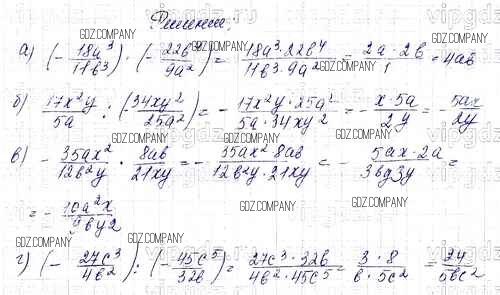 Решение.
а) (-18a³/11b³) · (-22b⁴/9a²) = 18a³·22b⁴/11b³·9a² = 2a·2b/1 = 4ab
б) 17x²y/5a : (-34xy²/25a²) = -17x²y·25a²/5a·34xy² = -x·5a/2y = -5ax/2y
в) -35ax²/12b²y · 8ab/21xy = -35ax²·8ab/12b²y·21xy = -5ax·2a/3by3y =
= -10a²x/9by2
г) (-27c³/4b²) : (-45c⁵/32b) = 27c³·32b/4b²·45c⁵ = 3·8/b·5c² = 24/5bc²
GDZ.COMPANY
GDZ.COMPANY
GDZ.COMPANY
GDZ.COMPANY
GDZ.COMPANY
GDZ.COMPANY
GDZ.COMPANY
GDZ.COMPANY
GDZ.COMPANY
GDZ.COMPANY
GDZ.COMPANY
GDZ.COMPANY